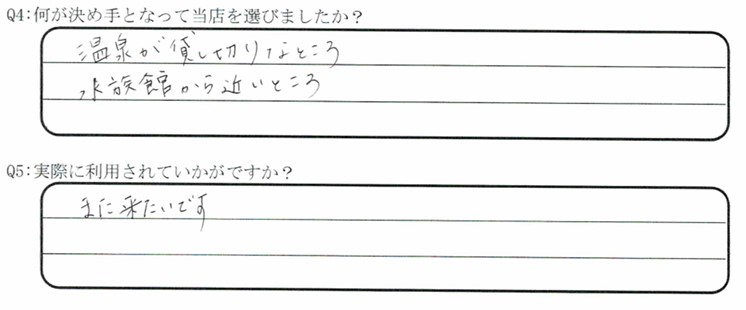 Q4:何が決め手となって当店を選びましたか？
温泉が貸し切りなところ
水族館から近いところ
Q5:実際に利用されていかがですか？
また来たいです